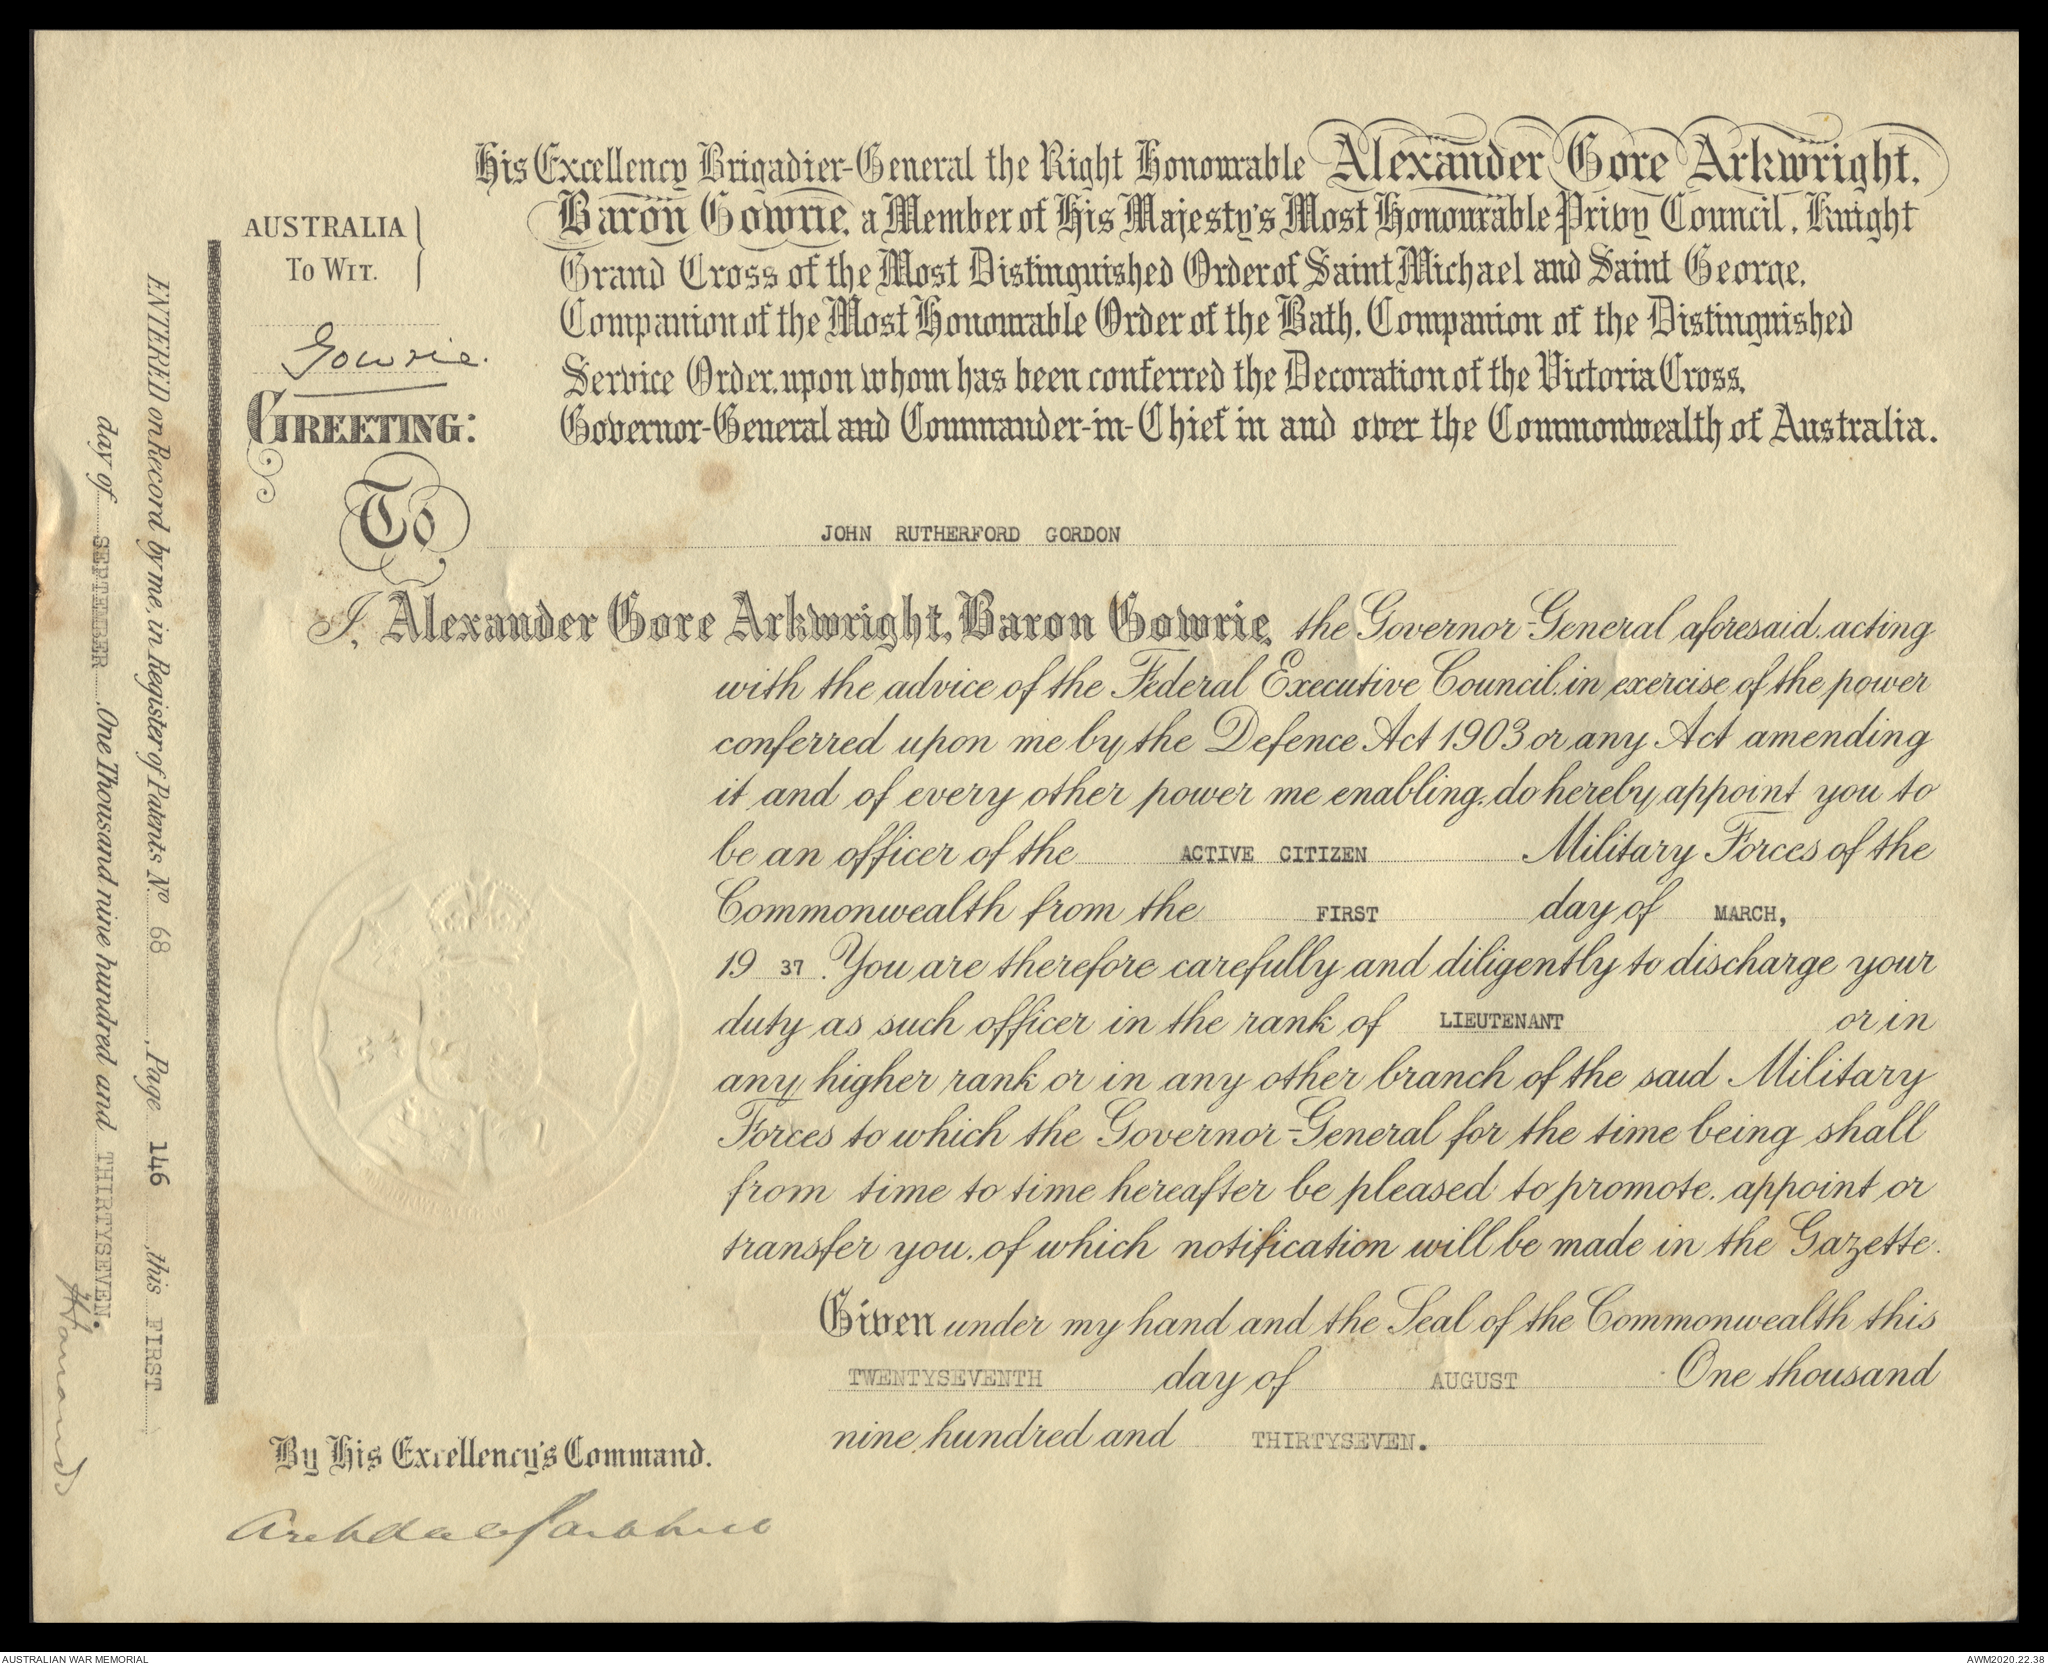 His Excellency Brigadier-General the Right Honourable Alexander Gore Arkwright,
Baron Gowrie, a Member of His Majesty's Most Honourable Privy Council, Knight
Grand Cross of the Most Distinguished Order of Saint Michael and Saint George,
Companion of the Most Honourable Order of the Bath, Companion of the Distinguished
Service Order, upon whom has been conferred the Decoration of the Victoria Cross,
Governor-General and Commander-in-Chief in and over the Commonwealth of Australia.
AUSTRALIA
TO WIT.
Gowrie.
GREETING:
To JOHN RUTHERFORD GORDON
I, Alexander Gore Arkwright, Baron Gowrie, the Governor-General aforesaid, acting
with the advice of the Federal Executive Council, in exercise of the power
conferred upon me by the Defence Act 1903 or any Act amending
it and of every other power me enabling, do hereby appoint you to
be an officer of the ACTIVE CITIZEN Military Forces of the
Commonwealth from the FIRST day of MARCH,
19 37. You are therefore carefully and diligently to discharge your
duty as such officer in the rank of LIEUTENANT or in
any higher rank or in any other branch of the said Military
Forces to which the Governor-General for the time being shall
from time to time hereafter be pleased to promote, appoint or
transfer you, of which notification will be made in the Gazette.
Given under my hand and the Seal of the Commonwealth this
TWENTYSEVENTH day of AUGUST One thousand
nine hundred and THIRTYSEVEN.
By His Excellency's Command.
ENTERED on Record by me, in Register of Patents No. 68, Page 146 this FIRST
day of SEPTEMBER, One Thousand nine hundred and THIRTYSEVEN.
AUSTRALIAN WAR MEMORIAL
AWM2020.22.38